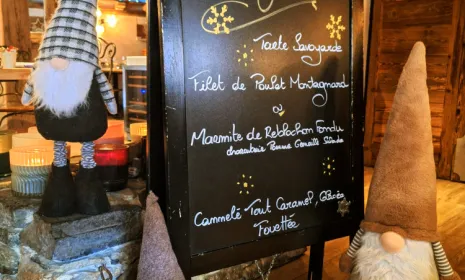 Tarte Savoyarde
Filet de Poulet Montagnard
ou
Marmite de Reblochon Fondu
charcuterie Pomme Grenaille Salade
Cannelé Tout Caramel, Glace
Fouettée